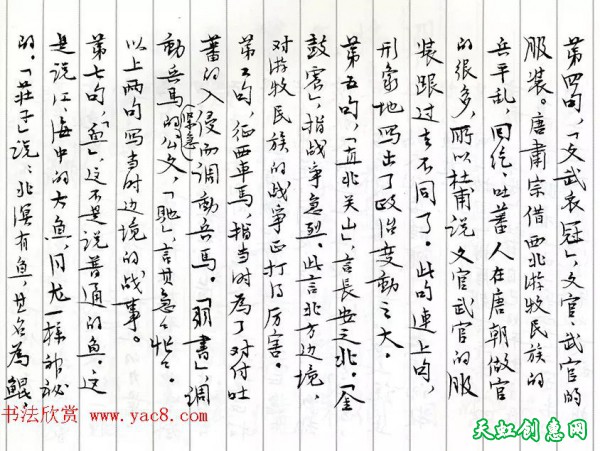 第四句,「文武衣冠」,文官、武官的
服装。唐肃宗借西北游牧民族的
兵平乱,回纥、吐蕃人在唐朝做官
的很多,所以杜甫说文官武官的服
装跟过去不同了。此句连上句,
形象地写出了政治变动之大。
第五句,「直北关山」,言长安之北。「金
鼓震」,指战争急烈。此言北方边境,
对游牧民族的战争正打得厉害。
第六句,征西车马,指当时为了对付吐
蕃的入侵而调动兵马。「羽书」,调
動兵馬的緊急公文「馳」,言其急急忙忙。
以上两句写当时边境的战事。
第七句,「鱼」,这不是说普通的鱼。这
是说江、海中的大鱼,同龙一样神秘
的。「莊子」说:北溟有鱼,其名為鲲,
书法欣赏 www.yac8.com
天虹创惠网